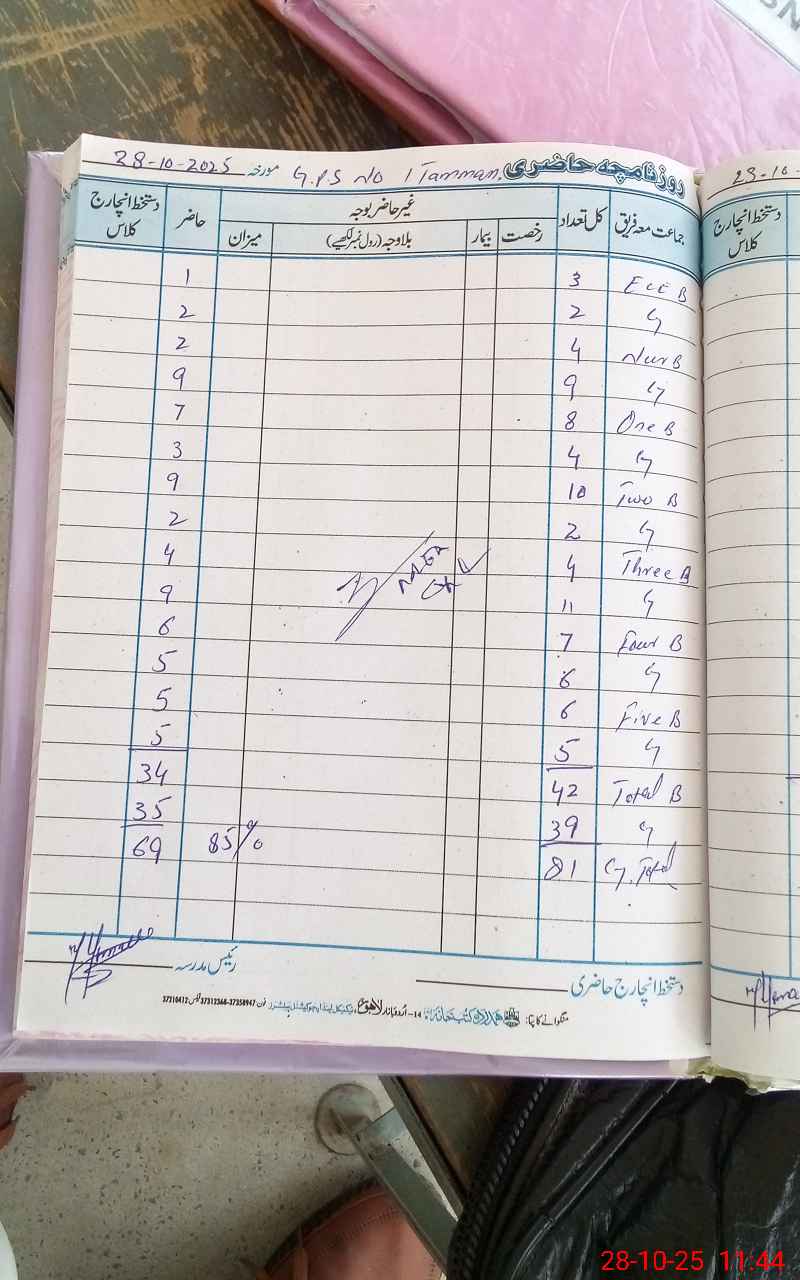 روزنامچہ حاضری G.P.S NO 1 Tamman. مورخہ 28-10-2025
جماعت معہ فریق کل تعداد غیر حاضر بوجہ حاضر دستخط انچارج کلاس
رخصت بیمار بلاوجہ (رول نمبر لکھیے) میزان
ECE B 3 1
G 2 2
Nur B 4 2
G 9 9
One B 8 7
G 4 3
Two B 10 9
G 2 2
Three B 4 4
G 11 9
Four B 7 6
G 6 5
Five B 6 5
G 5 5
Total B 42 34
G 39 35
G. Total 81 69 85%
رئیس مدرسہ
دستخط انچارج حاضری
منگوانے کا پتہ: ہمدرد کتب خانہ 14-اردو بازار لاہور
23-10-
دستخط انچارج کلاس
28-10-25 11:44